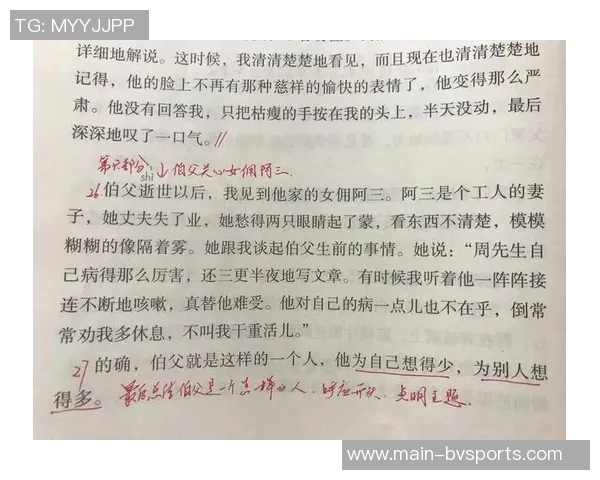 TG: MYYJJPP
详细地解说。这时候，我清清楚楚地看见，而且现在也清清楚楚地
记得，他的脸上不再有那种慈祥的愉快的表情了，他变得那么严
肃。他没有回答我，只把枯瘦的手按在我的头上，半天没动，最后
深深地叹了一口气。//
第六部分：伯父关心女佣阿三.
shì
26伯父逝世以后，我见到他家的女佣阿三。阿三是个工人的妻
子，她丈夫失了业，她愁得两只眼睛起了蒙，看东西不清楚，模模
糊糊的像隔着雾。她跟我谈起伯父生前的事情。她说：“周先生自
己病得那么厉害，还三更半夜地写文章。有时候我听着他一阵阵接
连不断地咳嗽，真替他难受。他对自己的病一点儿也不在乎，倒常
常劝我多休息，不叫我干重活儿。”
27的确，伯父就是这样的一个人，他为自己想得少，为别人想
得多。最后点清伯父是一个怎样的人.呼应开头.点明主题.
www.main-bvsports.com